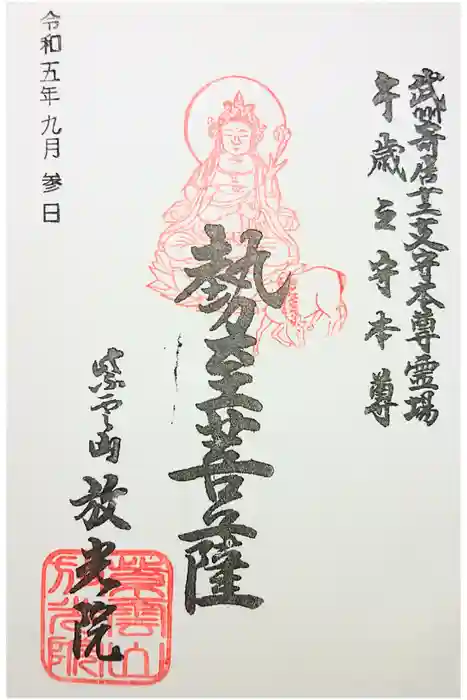 武州寄居十二支守本尊霊場
午歳之守本尊
勢至菩薩
紫雲山
放光院
令和五年九月参日
紫雲山
放光院